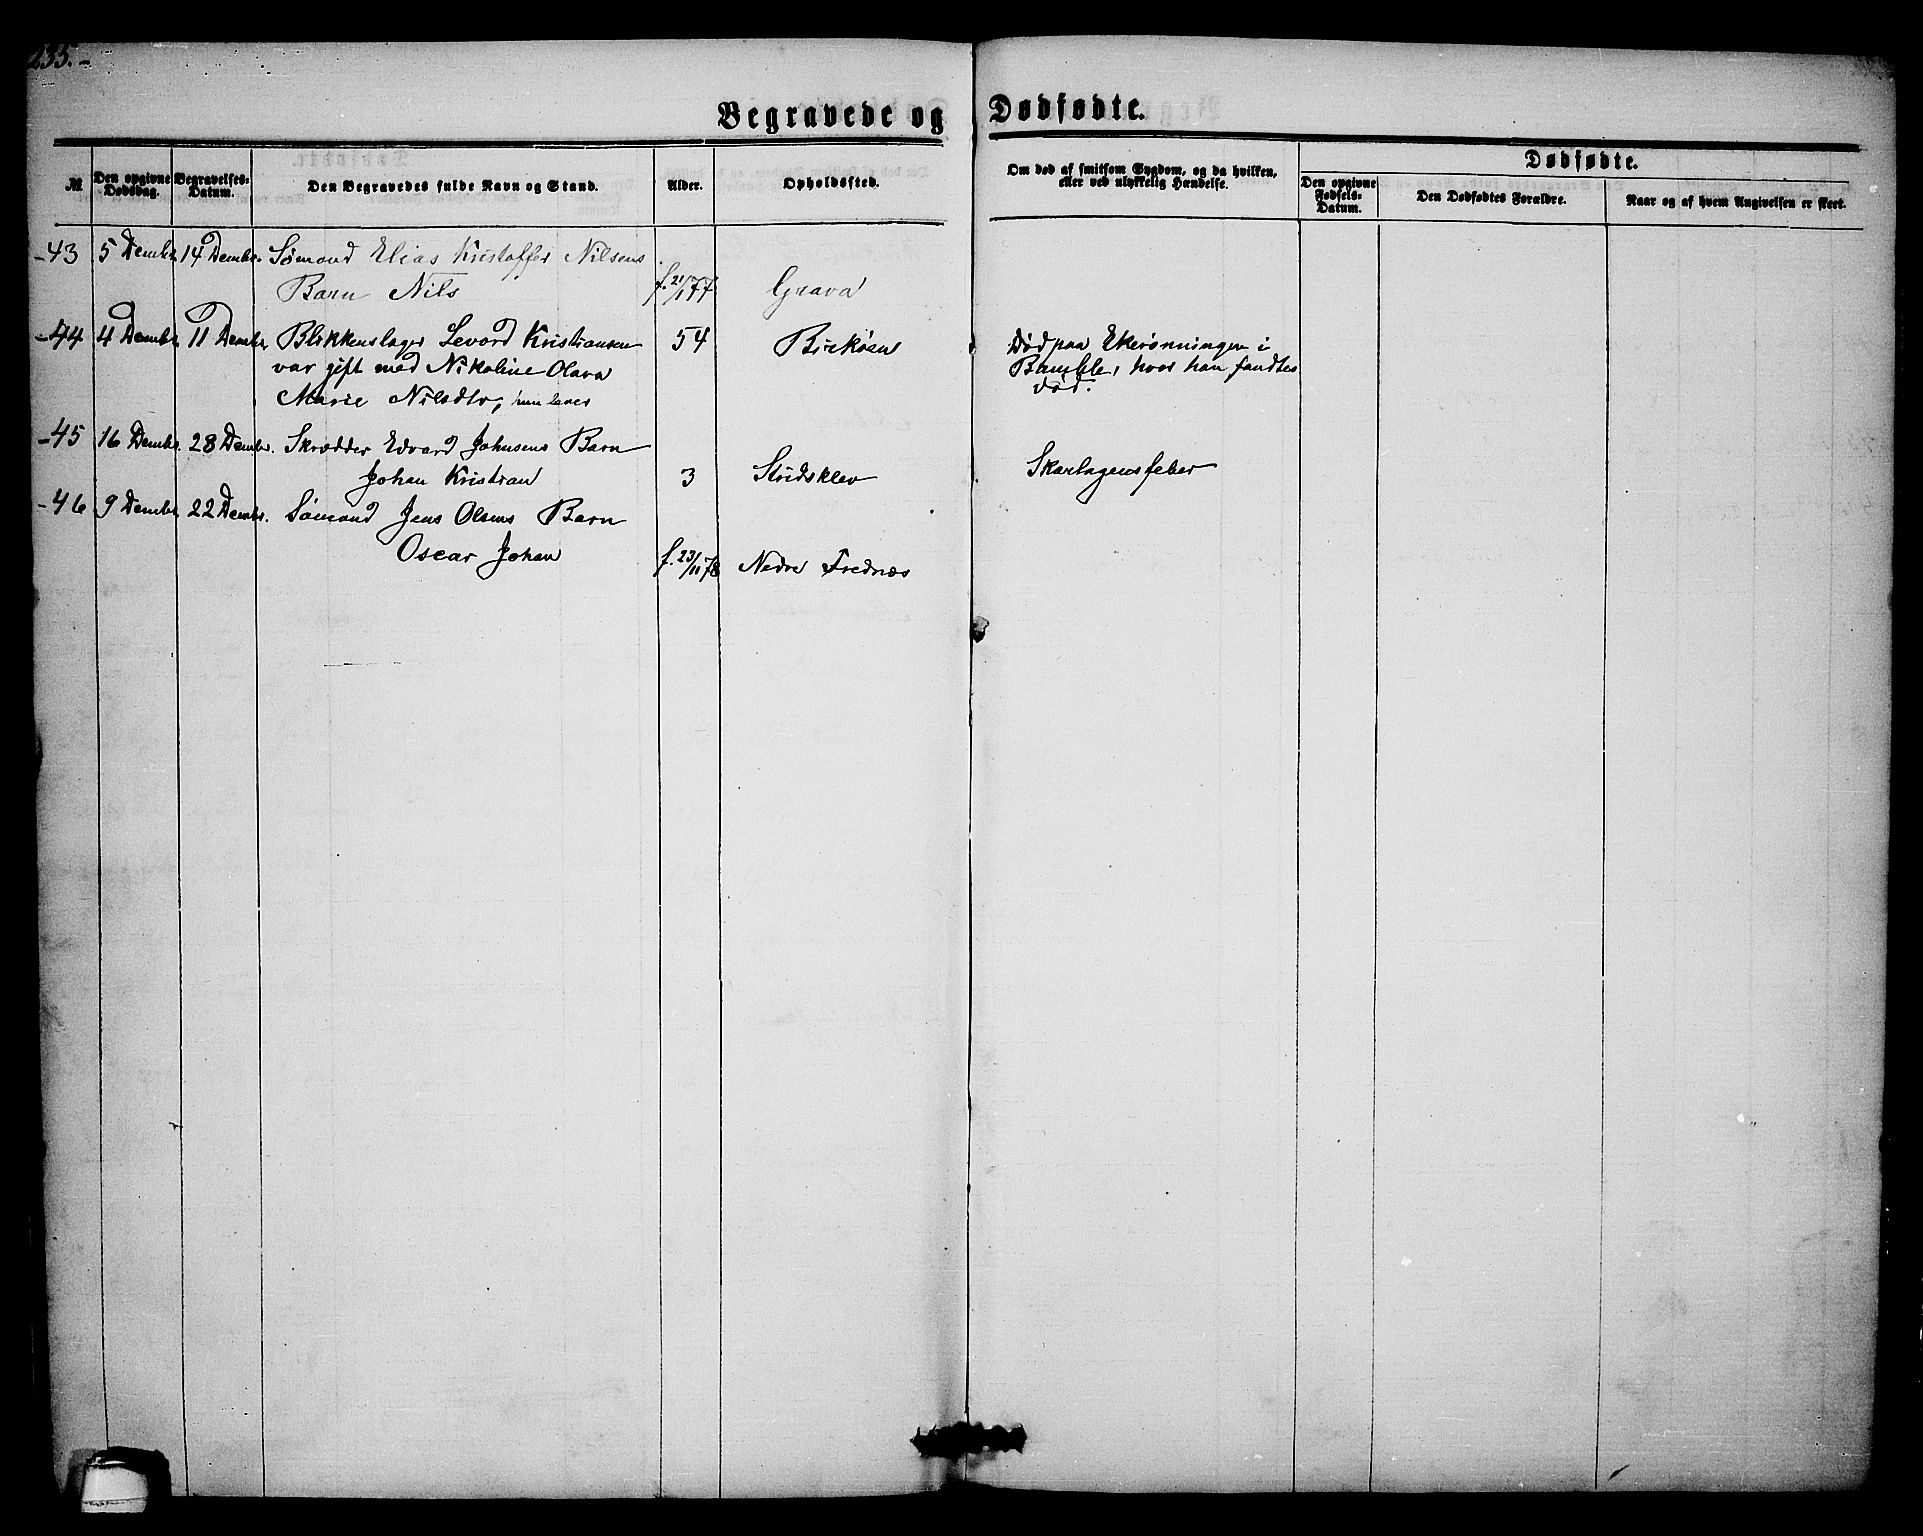 235.-
Begravede og Dødfødte.
№
Den opgivne Dødsdag.
Begravelses-Datum.
Den Begravedes fulde Navn og Stand.
Alder.
Opholdssted.
Om død af smitsom Sygdom, og da hvilken,
eller ved ulykkelig Hændelse.
Dødfødte.
Den opgivne Fødsels-Datum.
Den Dødfødtes Forældre.
Naar og af hvem Angivelsen er skeet.
-43 5 Dembr. 14 Dembr. Sømand Elias Kristoffer Nilsens
Barn Nils f. 21/1 77 Grava
-44 4 Dembr. 11 Dembr. Blikkenslager Sevord Kristiansen 54 Birkøen Død paa Ekerønningen i
var gift med Nikoline Olava Bamble, hvor han fandtes
Marie Nilsdtr, hun lever død.
-45 16 Dembr. 28 Dembr. Skrædder Edvard Johnsens Barn
Johan Kristian 3 Stidsklev Skarlagensfeber
-46 9 Dembr. 22 Dembr. Sømand Jens Olsens Barn
Oscar Johan f. 23/11 78 Nedre Frednæs